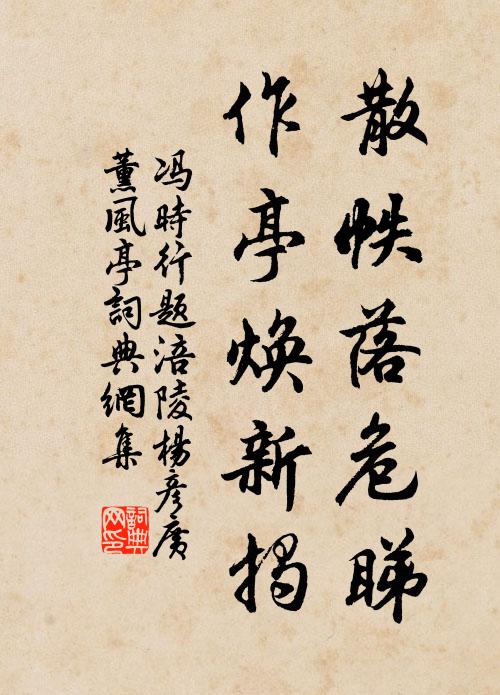 散帙落危睇
作亭焕新揭
冯時行题涪陵楊彦廣
薰風亭詞典網集
詞典网印